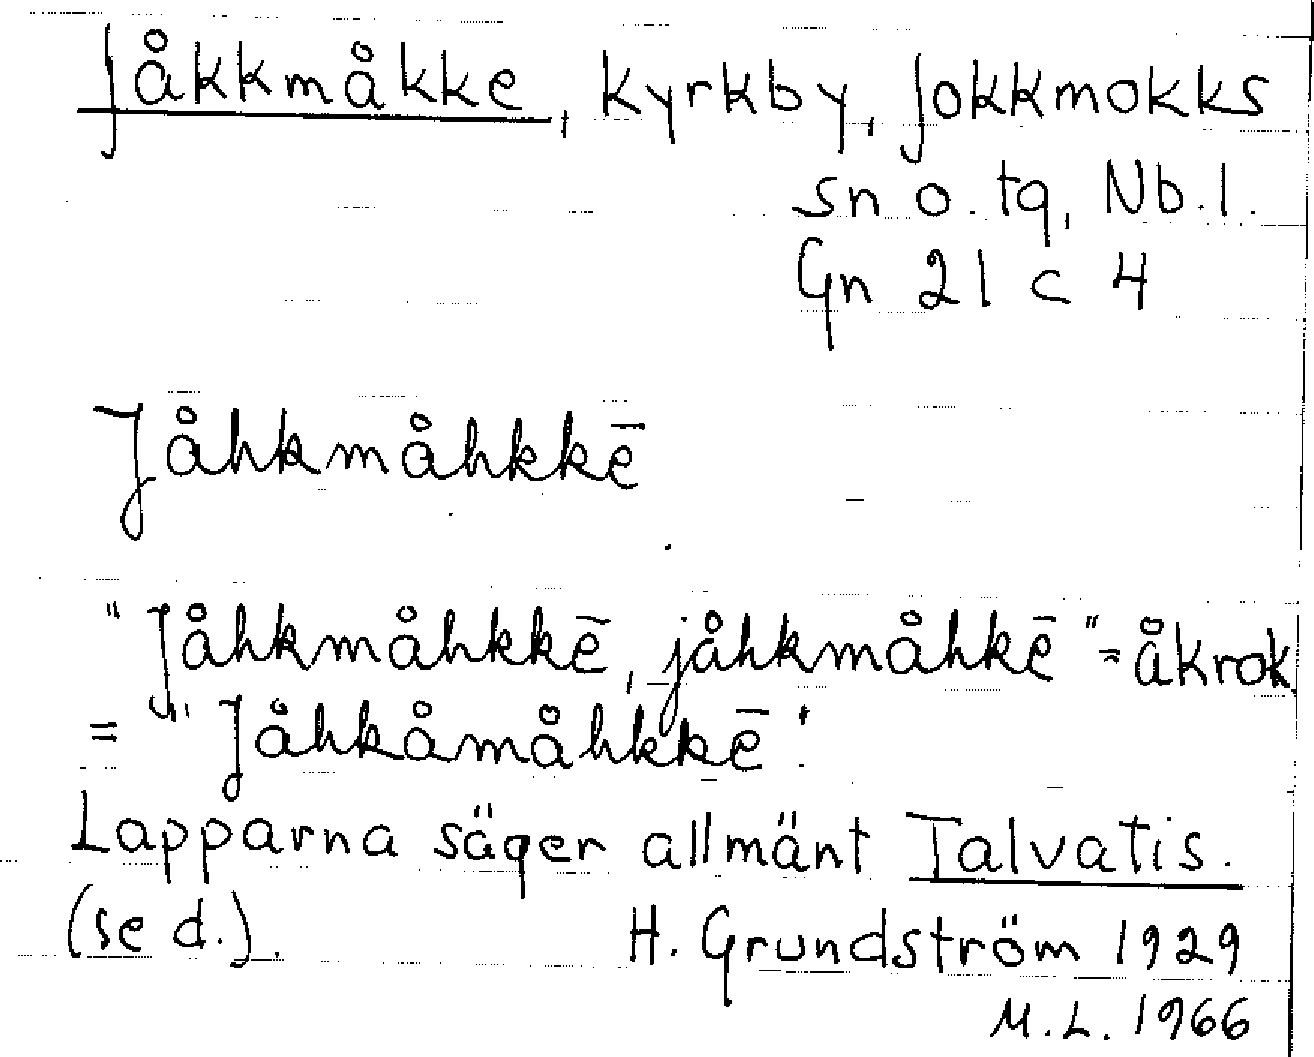 Jåkkmåkke, kyrkby, Jokkmokks
sn o. tg, Nb. l.
Gn 21 c 4
Jåhkmåhkkē
"Jåhkmåhkkē, jåhkmåhkē" = åkrok
= "Jåhkåmåhkkē".
Lapparna säger allmänt Talvatis.
(se d.).
H. Grundström 1929
M.L. 1966